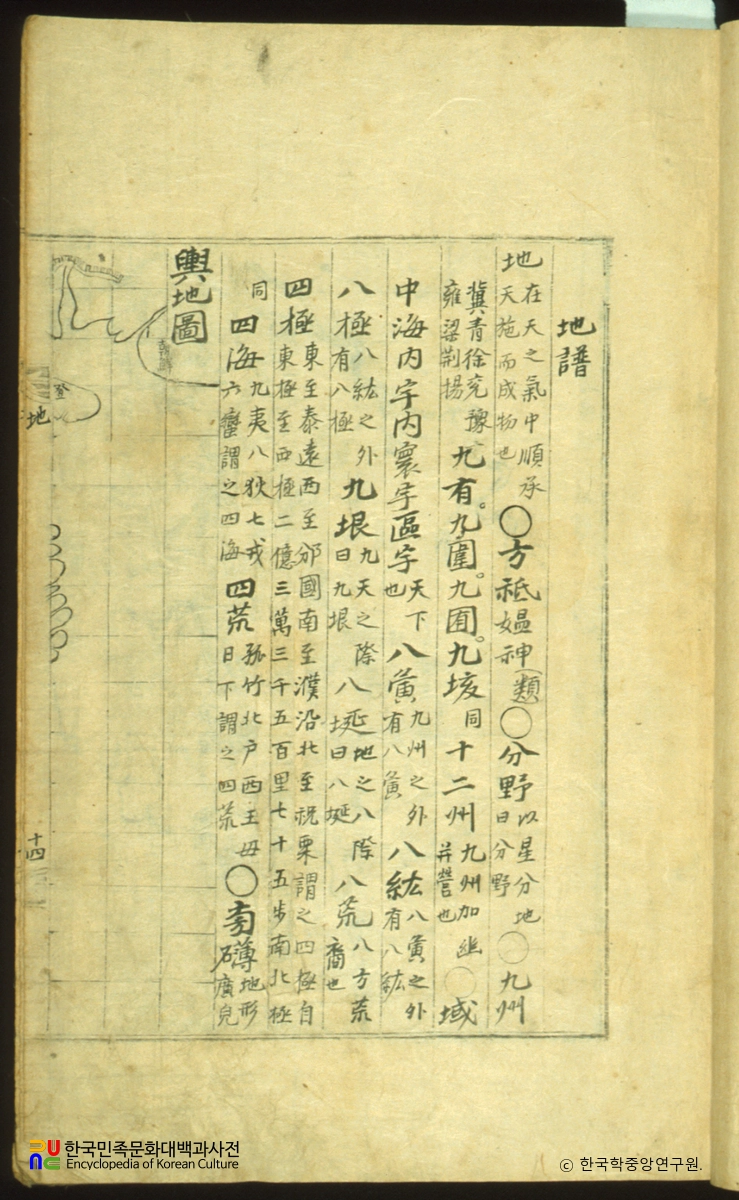 地譜
地在天之氣中順承天施而成物也○方祗媼神(類)○分野以星分地曰分野○九州
冀青徐兗豫雍梁荊揚九有。九圍。九囿。九垓同十二州九州加幽并營也○域
中海內宇內寰宇區宇天下也八夤九州之外有八夤八紘八夤之外有八紘
八極八紘之外有八極九垠九天之際曰九垠八埏地之八際曰八埏八荒八方荒裔也
四極東至泰遠西至邠國南至濮沿北至祝栗謂之四極自東極至西極二億三萬三千五百里七十五步南北極
同四海九夷八狄七戎六蠻謂之四海四荒孤竹北戶西王母日下謂之四荒○旁礴地形廣皃
輿地圖
登
地
十四
한국민족문화대백과사전
Encyclopedia of Korean Culture
© 한국학중앙연구원.